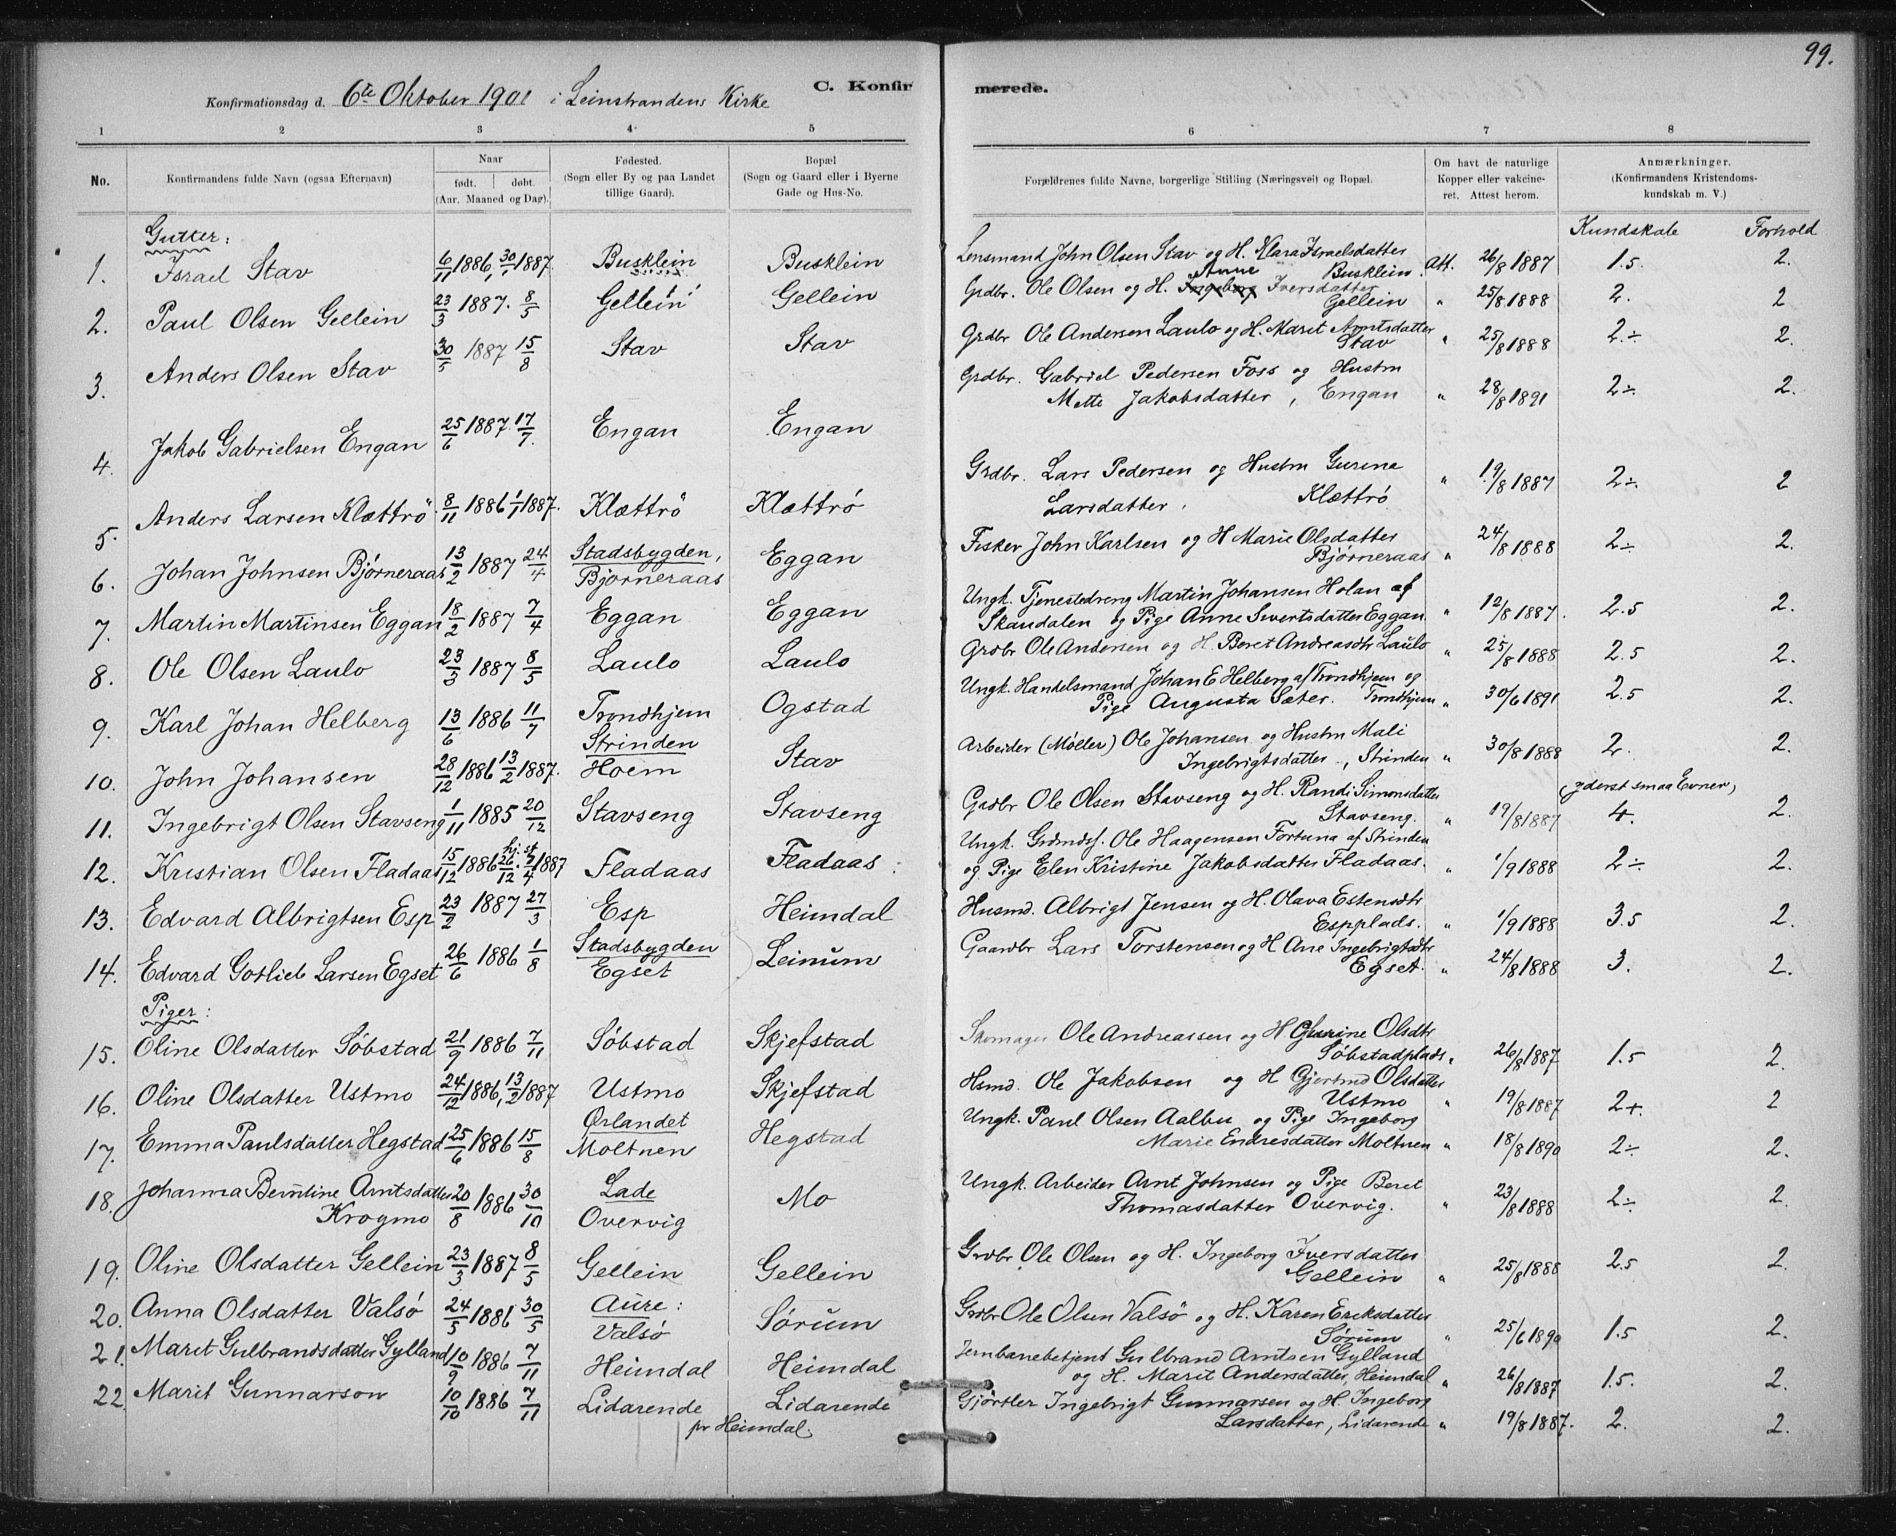 99.
C. Konfirmerede.
Konfirmationsdag d. 6te Oktober 1901 i Leinstrandens Kirke
1 2 3 4 5 6 7 8
No. | Konfirmandens fulde Navn (ogsaa Efternavn) | Naar født. døbt. (Aar. Maaned og Dag). | Fødested. (Sogn eller By og paa Landet tillige Gaard). | Bopæl (Sogn og Gaard eller i Byerne Gade og Hus-No. | Forældrenes fulde Navne, borgerlige Stilling (Næringsvei) og Bopæl. | Om havt de naturlige Kopper eller vakcineret. Attest herom. | Anmærkninger. (Konfirmandens Kristendomskundskab m. V.)
Gutter: Kundskab Forhold
1. Israel Stav 6/11 1886, 30/1 1887 Busklein Busklein Lensmand John Olsen Stav og H. Klara Israelsdatter Busklein. Att. 26/8 1887 1.5. 2.
2. Paul Olsen Gellein 23/3 1887. 8/5 Gellein Gellein Grdbr. Ole Olsen og H. Ingeborg Anne Iversdatter Gellein " 25/8 1888 2. 2
3. Anders Olsen Stav 30/5 1887 15/8 Stav Stav Grdbr Ole Andersen Laulo og H. Marit Arntsdatter Stav " 25/8 1888 2÷ 2.
4. Jakob Gabrielsen Engan 25/6 1887. 17/7. Engan Engan Grdbr. Gabriel Pedersen Foss og Hustru Mette Jakobsdatter, Engan " 28/8 1891 2÷ 2.
5. Anders Larsen Klættrö 8/11 1886 1/1 1887. Klættrö Klættró Grdbr. Lars Pedersen og Hustru Gurina Larsdatter, Klættrò " 19/8 1887 2÷. 2
6. Johan Johnsen Bjørneraas 13/2 1887 24/4 Stadsbygden, Bjørneraas Eggan Fisker John Karlsen og H Marie Olsdatter Bjørneraas " 24/8 1888 2÷ 2.
7. Martin Martinsen Eggan 18/2 1887 7/4 Eggan Eggan Ungk. Tjenestedreng Martin Johansen Holan af Skaudalen og Pige Anne Sivertsdatter Eggan. " 12/8 1887. 2.5 2.
8. Ole Olsen Laulo 23/3 1887 8/5 Laulo Laulo Grdbr Ole Andersen og H. Beret Andreasdtr Laulo " 25/8 1888 2.5 2.
9. Karl Johan Helberg 13/6 1886 11/7 Trondhjem Ogstad Ungk. Handelsmand Johan E Helberg af Trondhjem og Pige Augusta Sæter. Trondhjem " 30/6 1891 2.5 2.
10. John Johansen 28/12 1886 13/2 1887. Strinden Hoem Stav Arbeider (Møller) Ole Johansen og Hustru Mali Ingebrigtsdatter, Strinden " 30/8 1888 2. 2.
11. Ingebrigt Olsen Stavseng 1/11 1885 20/12 Stavseng Stavseng Gadbr Ole Olsen Stavseng og H. Randi Simonsdatter Stavseng. " 19/8 1887 (yderst smaa Evner) 4. 2.
12. Kristian Olsen Fladaas 15/12 1886 hj. 26/12. st. 7/4 1887 Fladaas Fladaas Ungk. Grdmdsf. Ole Haagensen Fortuna af Strinden og Pige Elen Kristine Jakobsdatter Fladaas. " 1/9 1888 2÷ 2.
13. Edvard Albrigtsen Esp 23/2 1887 27/3 Esp Heimdal Husmd. Albrigt Jensen og H. Olava Estensdtr Espplads. " 1/9 1888 3.5 2.
14. Edvard Gotlieb Larsen Egset 26/6 1886 1/8 Stadsbygden Egset Leinum Gaardbr Lars Torstensen og H Ane Ingebrigtsdtr Egset. " 24/8 1888 3. 2.
Piger:
15. Oline Olsdatter Söbstad 21/9 1886 7/11 Söbstad Skjefstad Skomager Ole Andreassen og H Gurine Olsdtr Söbstadplads. " 26/8 1887 1.5 2.
16. Oline Olsdatter Ustmo 24/12 1886, 13/2 1887 Ustmo Skjefstad Hsmd. Ole Jakobsen og H Gjertrud Olsdatter Ustmo " 19/8 1887 2+. 2
17. Emma Paulsdatter Hegstad 25/6 1886 15/8 Ørlandet Moltuen Hegstad Ungk. Paul Olsen Aalbu og Pige Ingeborg Marie Endresdatter Moltuen " 18/8 1890 2÷ 2.
18. Johanna Berntine Arntsdatter Krogmo 20/8 1886 30/10 Lade Overvig Mo Ungk. Arbeider Arnt Johnsen og Pige Beret Thomasdatter Overvig. " 23/8 1888 2÷. 2.
19. Oline Olsdatter Gellein 23/3 1887 8/5 Gellein Gellein Grdbr Ole Olsen og H. Ingeborg Iversdatter Gellein " 25/8 1888 2.5 2.
20. Anna Olsdatter Valsö 24/5 1886 30/5 Aure: Valsö Sórum Grdbr Ole Olsen Valsö og H. Karen Eriksdatter Sörum " 25/6 1890 1.5 2.
21. Marit Gulbrandsdatter Gylland 10/9 1886 7/11 Heimdal Heimdal Jernbanebetjent Gulbrand Arntsen Gylland og H. Marit Andersdatter, Heimdal " 26/8 1887 1.5. 2.
22 Marit Gunnarson 10/10 1886 7/11 Lidarende Lidarende pr Heimdal. Gjörtler Ingebrigt Gunnarsen og H. Ingeborg Larsdatter, Lidarende " 19/8 1887. 2. 2.